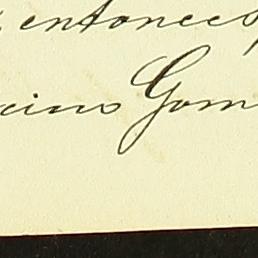 entonces
cinus Gom